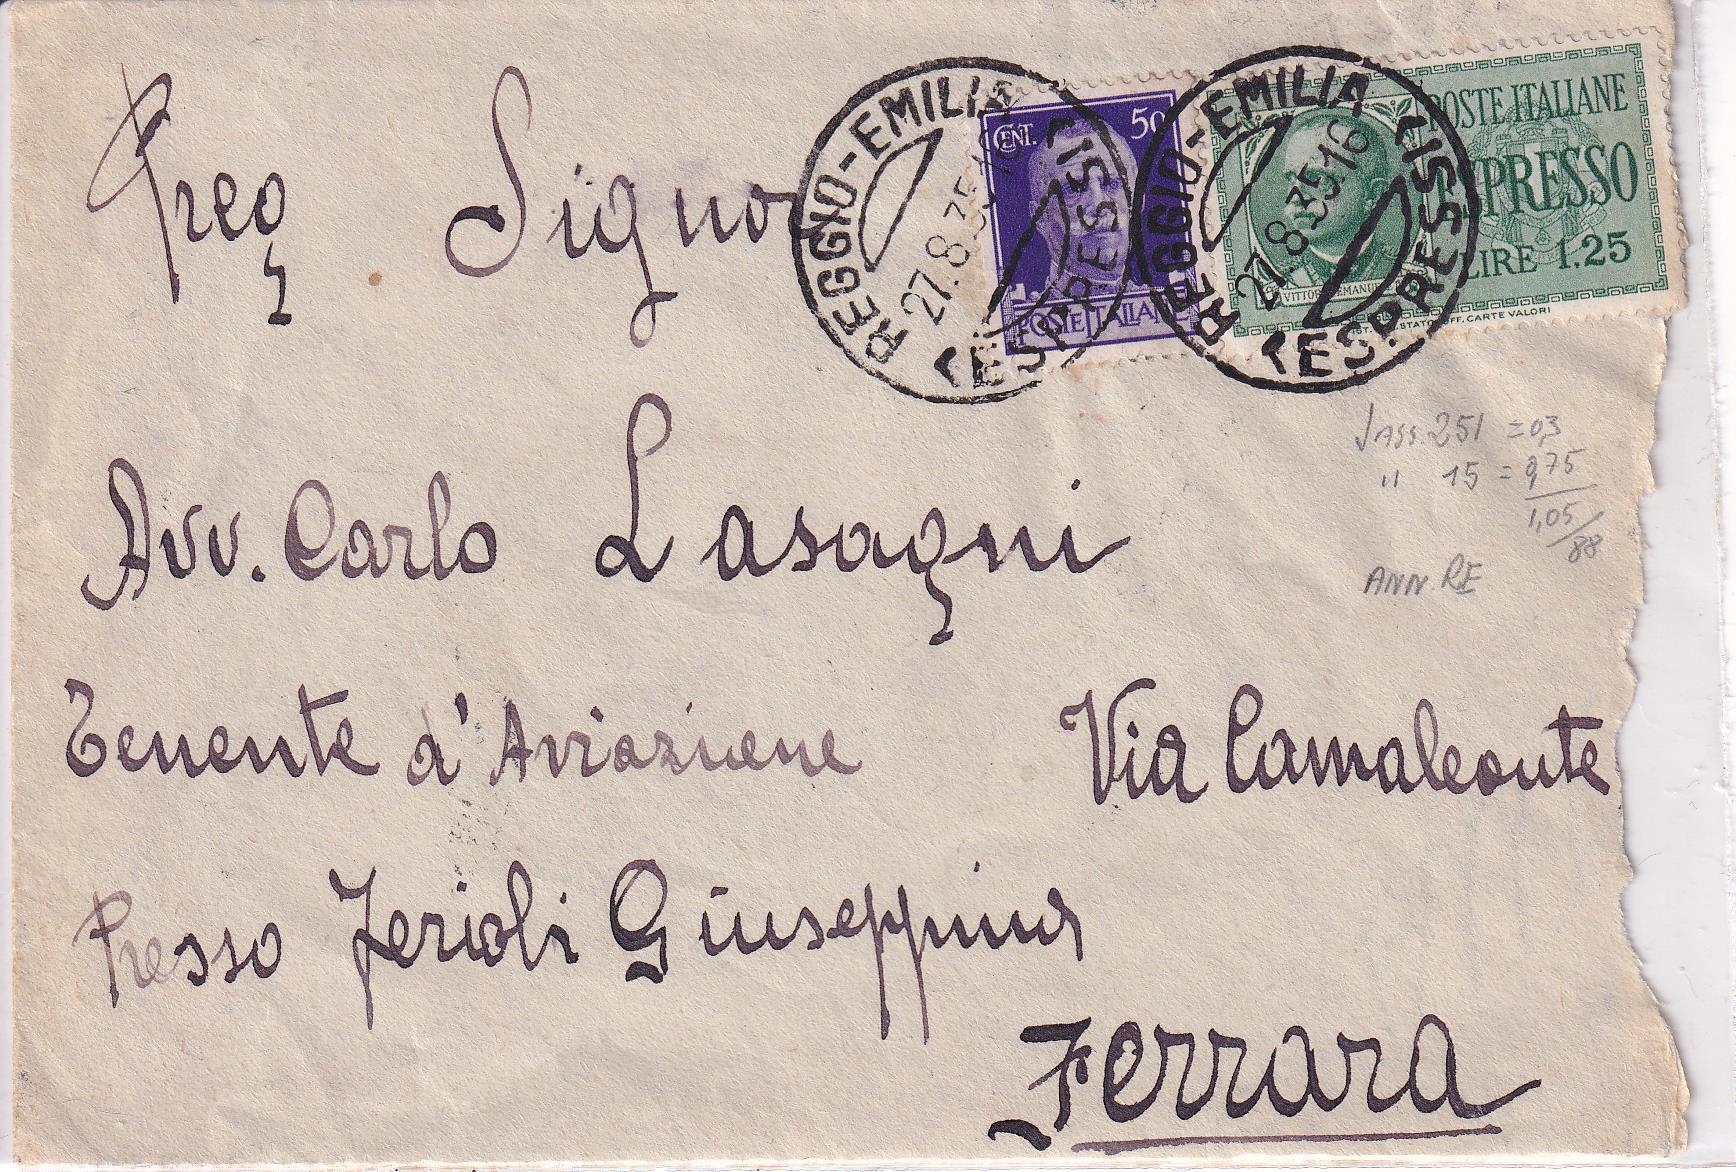 REGGIO-EMILIA (ESPRESSI)
27.8.35.16
CENT. 50
POSTE ITALIANE
REGGIO-EMILIA (ESPRESSI)
27.8.35.16
POSTE ITALIANE
ESPRESSO
LIRE 1.25
VITTORIO EMANUELE
IST. POL. STATO OFF. CARTE VALORI
Preg Signor
Avv. Carlo Lasagni
Tenente d'Aviazione Via Camaleonte
Presso Jerioli Giuseppina
Ferrara
SASS. 251 = 0,3
" 15 = 0,75
1,05/88
ANN. RE